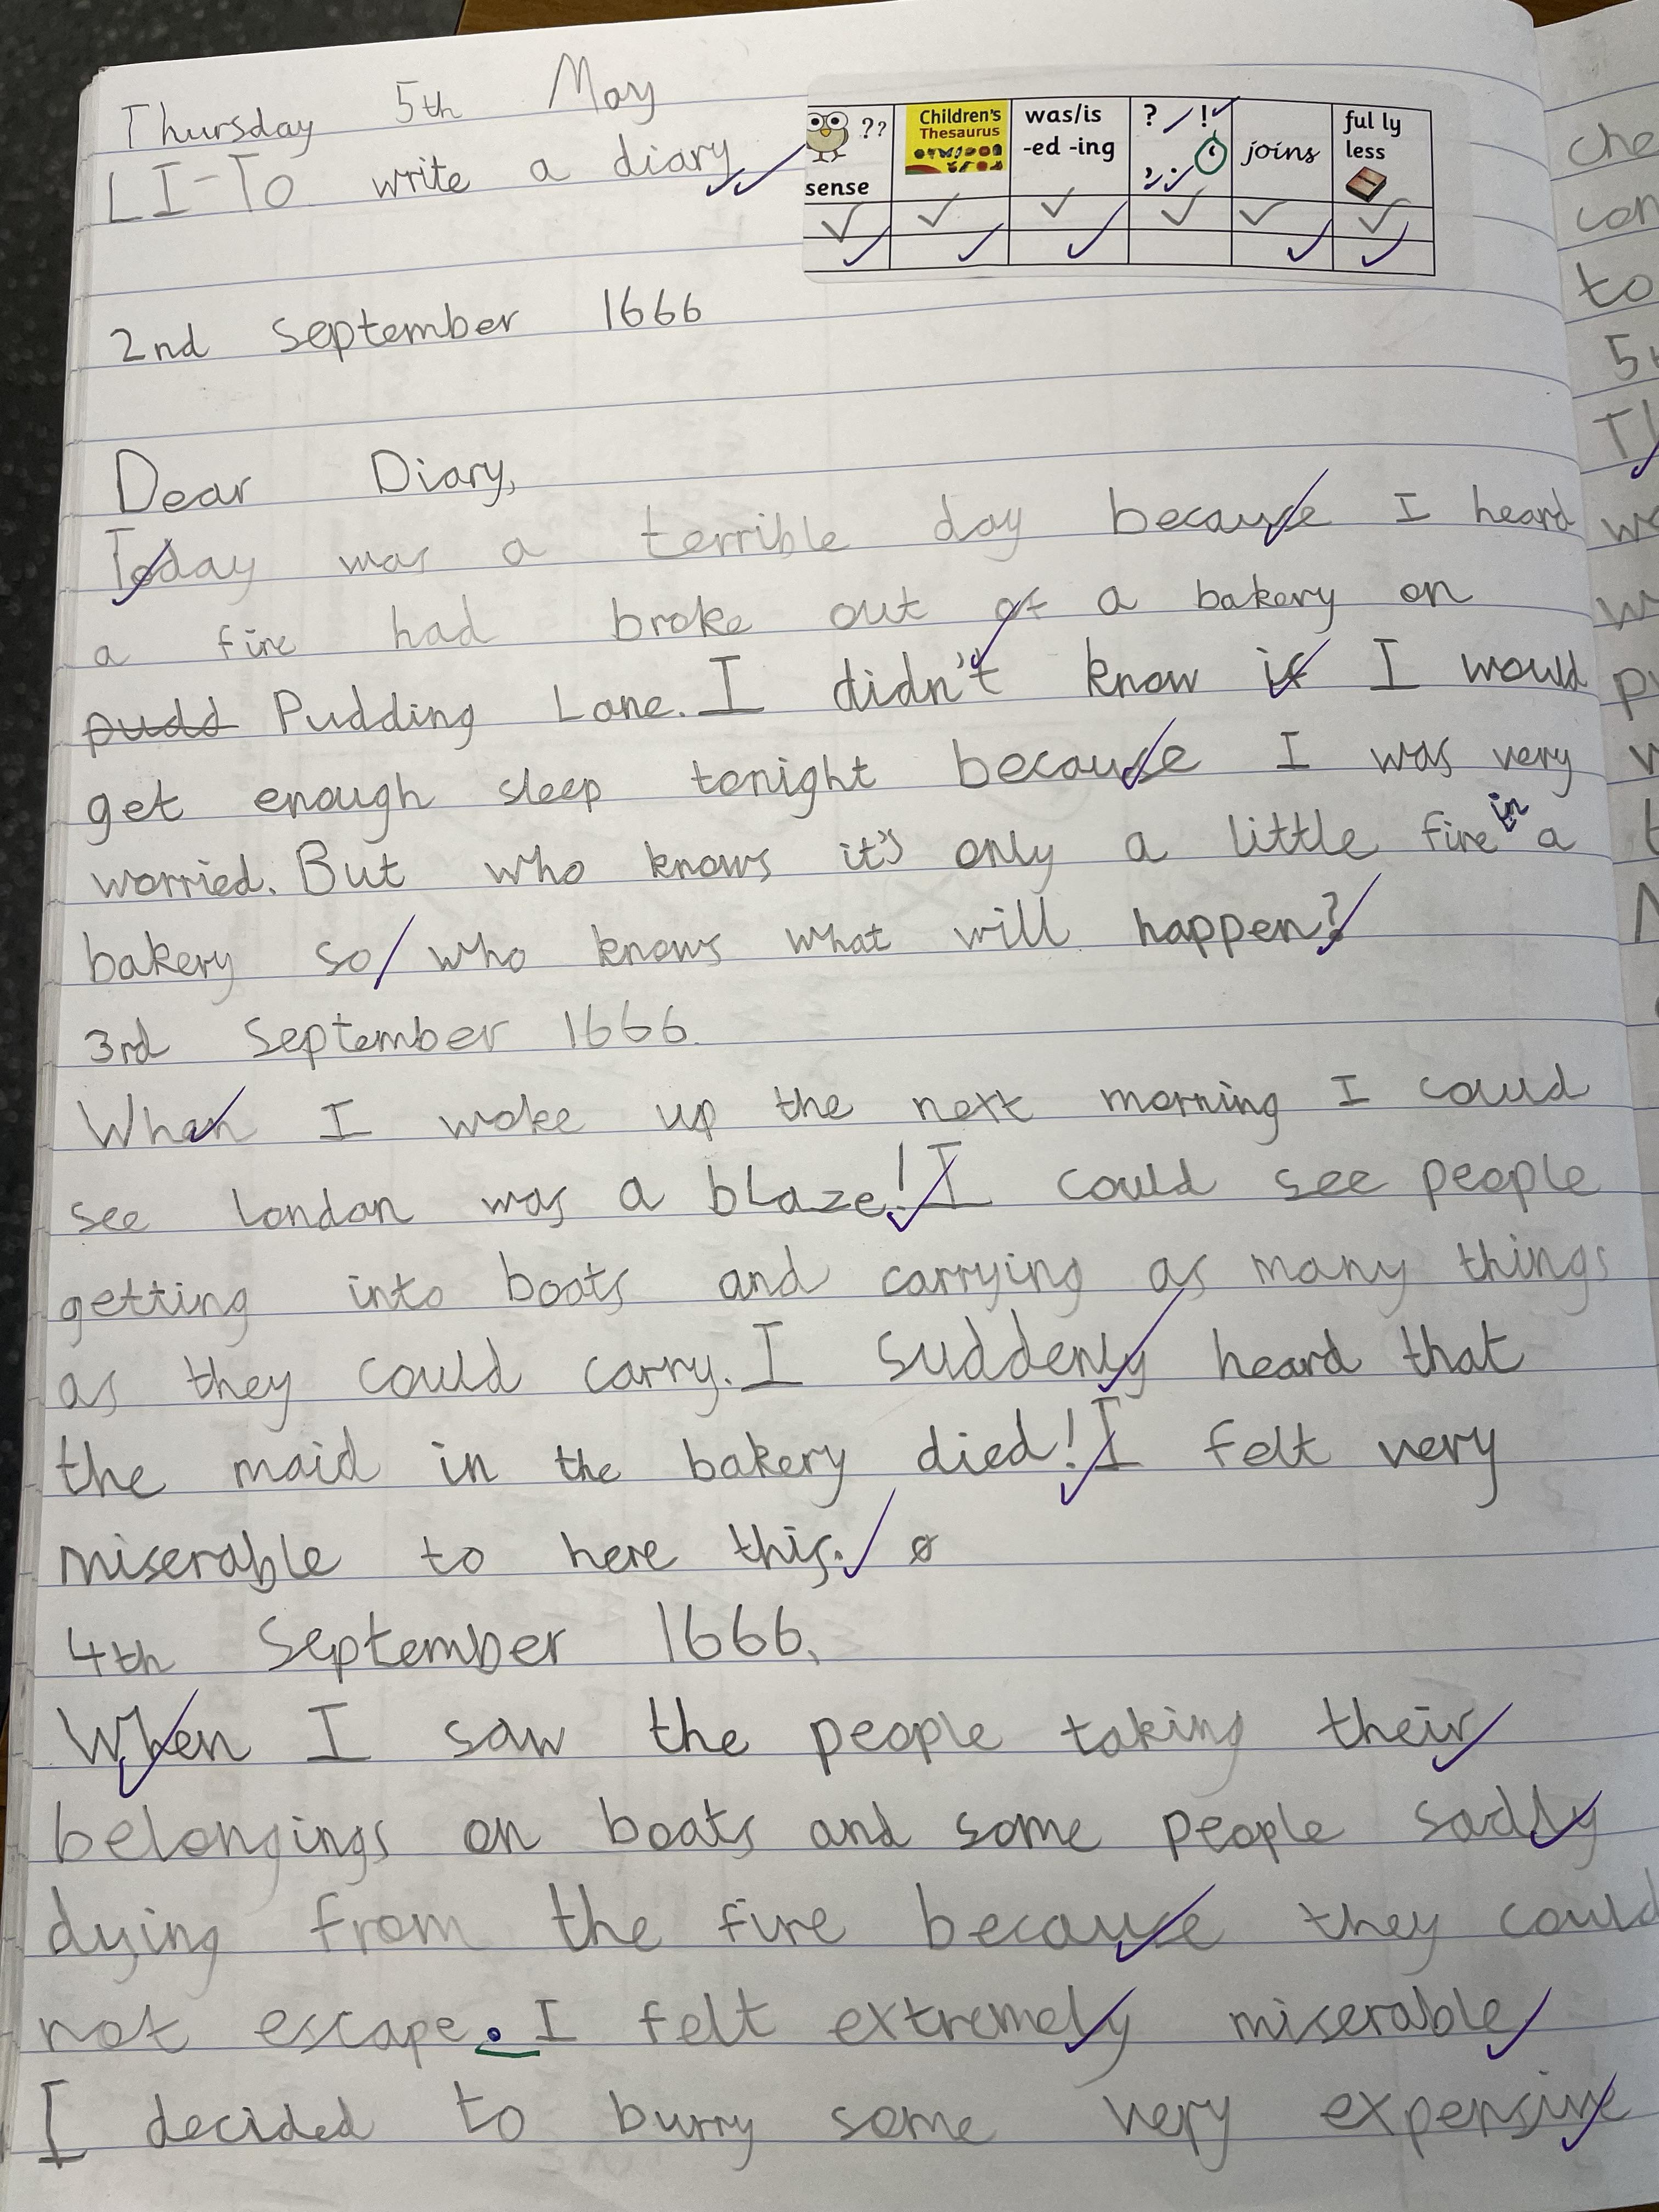 Thursday 5th May
LI-To write a diary
?? sense
Children's Thesaurus
was/is -ed -ing
? ! , . '
joins
ful ly less
2nd September 1666
Dear Diary,
Today was a terrible day because I heard
a fire had broke out of a bakery on
pudd Pudding Lane. I didn't know if I would
get enough sleep tonight because I was very
worried. But who knows it's only a little fire in a
bakery so who knows what will happen?
3rd September 1666.
When I woke up the next morning I coud
see London was a blaze! I could see people
getting into boats and carrying as many things
as they could carry. I suddenly heard that
the maid in the bakery died! I felt very
miserable to here this.
4th September 1666.
When I saw the people taking their
belongings on boats and some people sadly
dying from the fire because they could
not escape. I felt extremely miserable
I decided to burry some very expensive
che
con
to
5
T
w
w
pu